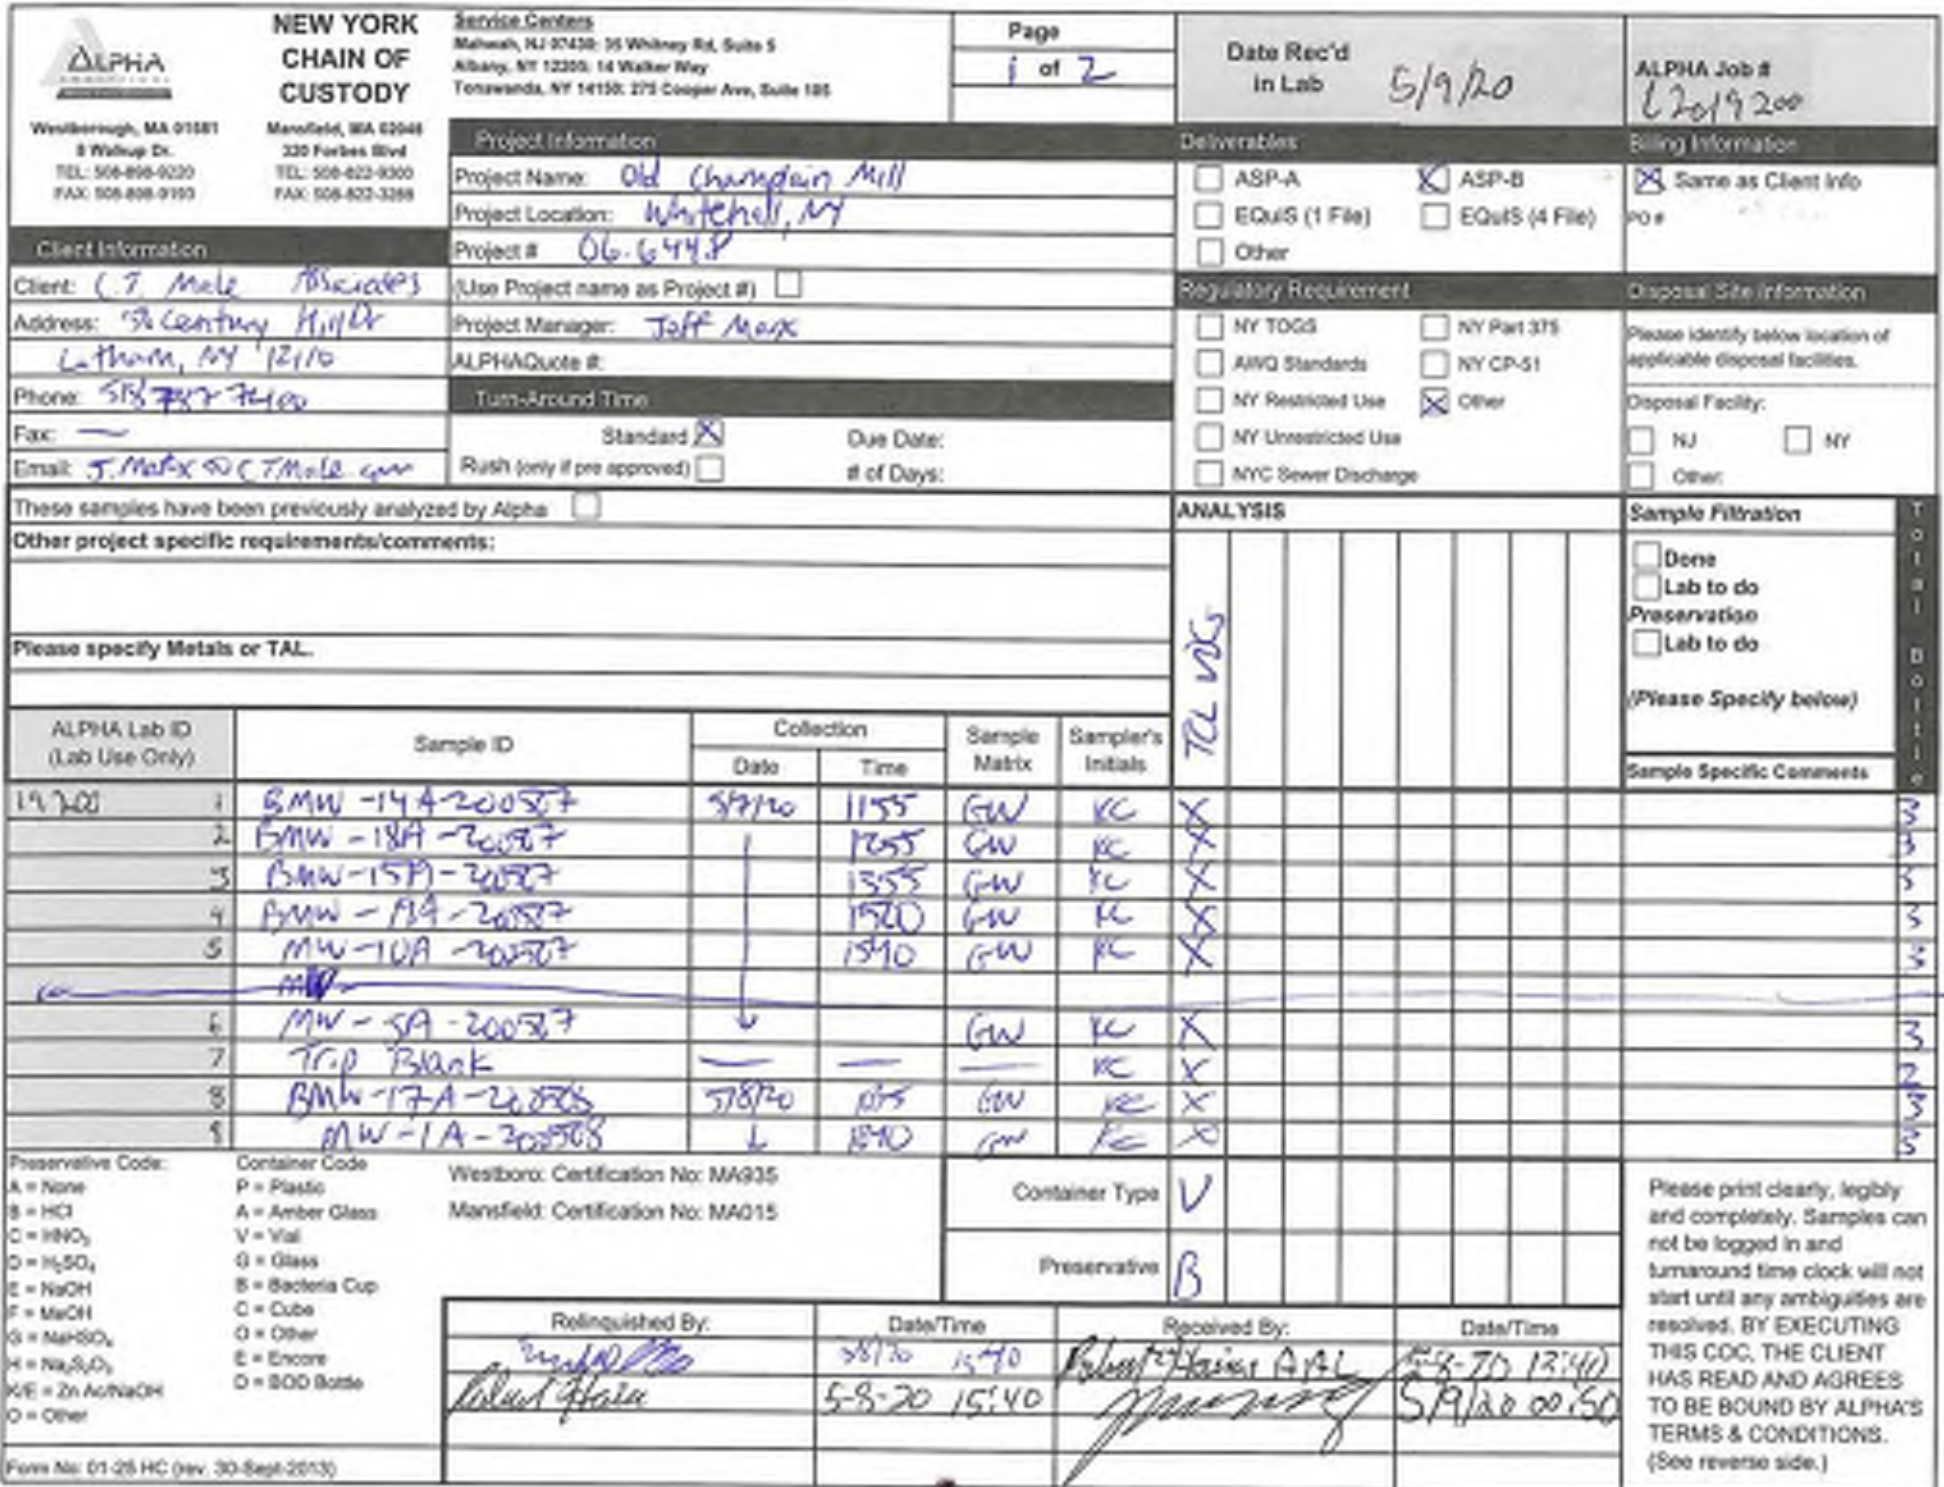 ALPHA
NEW YORK
CHAIN OF
CUSTODY
Westborough, MA 01581
8 Walkup Dr.
TEL: 508-898-9220
FAX: 508-898-9193
Mansfield, MA 02048
320 Forbes Blvd
TEL: 508-822-9300
FAX: 508-822-3288
Service Centers
Mahwah, NJ 07430: 35 Whitney Rd, Suite 5
Albany, NY 12205: 14 Walker Way
Tonawanda, NY 14150: 275 Cooper Ave, Suite 105
Page
1 of 2
Date Rec'd
in Lab 5/9/20
ALPHA Job #
L2019200
Client Information
Client: C.T. Male Associates
Address: 50 Century Hill Dr
Latham, NY 12110
Phone: 518 787-7400
Fax: —
Email:
Project Information
Project Name: Old Champlain Mill
Project Location: Whitehall, NY
Project # 06.6448
(Use Project name as Project #)
Project Manager: Jeff Marx
ALPHAQuote #:
Turn-Around Time
Standard X Due Date:
Rush (only if pre approved) # of Days:
Deliverables
ASP-A X ASP-B
EQuIS (1 File) EQuIS (4 File)
Other
Regulatory Requirement
NY TOGS NY Part 375
AWQ Standards NY CP-51
NY Restricted Use X Other
NY Unrestricted Use
NYC Sewer Discharge
Billing Information
X Same as Client Info
PO #
Disposal Site Information
Please identify below location of
applicable disposal facilities.
Disposal Facility:
NJ NY
Other:
These samples have been previously analyzed by Alpha
Other project specific requirements/comments:
Please specify Metals or TAL.
ANALYSIS
TCL VOCs
Sample Filtration
Done
Lab to do
Preservation
Lab to do
(Please Specify below)
Sample Specific Comments
Total Bottle
ALPHA Lab ID
(Lab Use Only)
Sample ID
Collection
Date Time
Sample
Matrix
Sampler's
Initials
19200 1 BMW-14A-200507 5/7/20 1155 GW KC X 3
2 BMW-18A-200507 1255 GW KC X 3
3 BMW-15A-200507 1355 GW KC X 3
4 BMW-19A-200507 1520 GW KC X 3
5 MW-10A-200507 1540 GW KC X 3
6 MW-5A-200507 GW KC X 3
7 Trip Blank — — — KC X 2
8 BMW-17A-200508 5/8/20 GW KC X 3
9 MW-1A-200508 GW KC X 3
Preservative Code:
A = None
B = HCl
C = HNO₃
D = H₂SO₄
E = NaOH
F = MeOH
G = NaHSO₄
H = Na₂S₂O₃
K/E = Zn Ac/NaOH
O = Other
Container Code
P = Plastic
A = Amber Glass
V = Vial
G = Glass
B = Bacteria Cup
C = Cube
O = Other
E = Encore
D = BOD Bottle
Westboro: Certification No: MA935
Mansfield: Certification No: MA015
Container Type V
Preservative B
Relinquished By: Date/Time Received By: Date/Time
5-8-20 15:40
5/9/20 00:50
Please print clearly, legibly
and completely. Samples can
not be logged in and
turnaround time clock will not
start until any ambiguities are
resolved. BY EXECUTING
THIS COC, THE CLIENT
HAS READ AND AGREES
TO BE BOUND BY ALPHA'S
TERMS & CONDITIONS.
(See reverse side.)
Form No: 01-25 HC (rev. 30-Sept-2013)